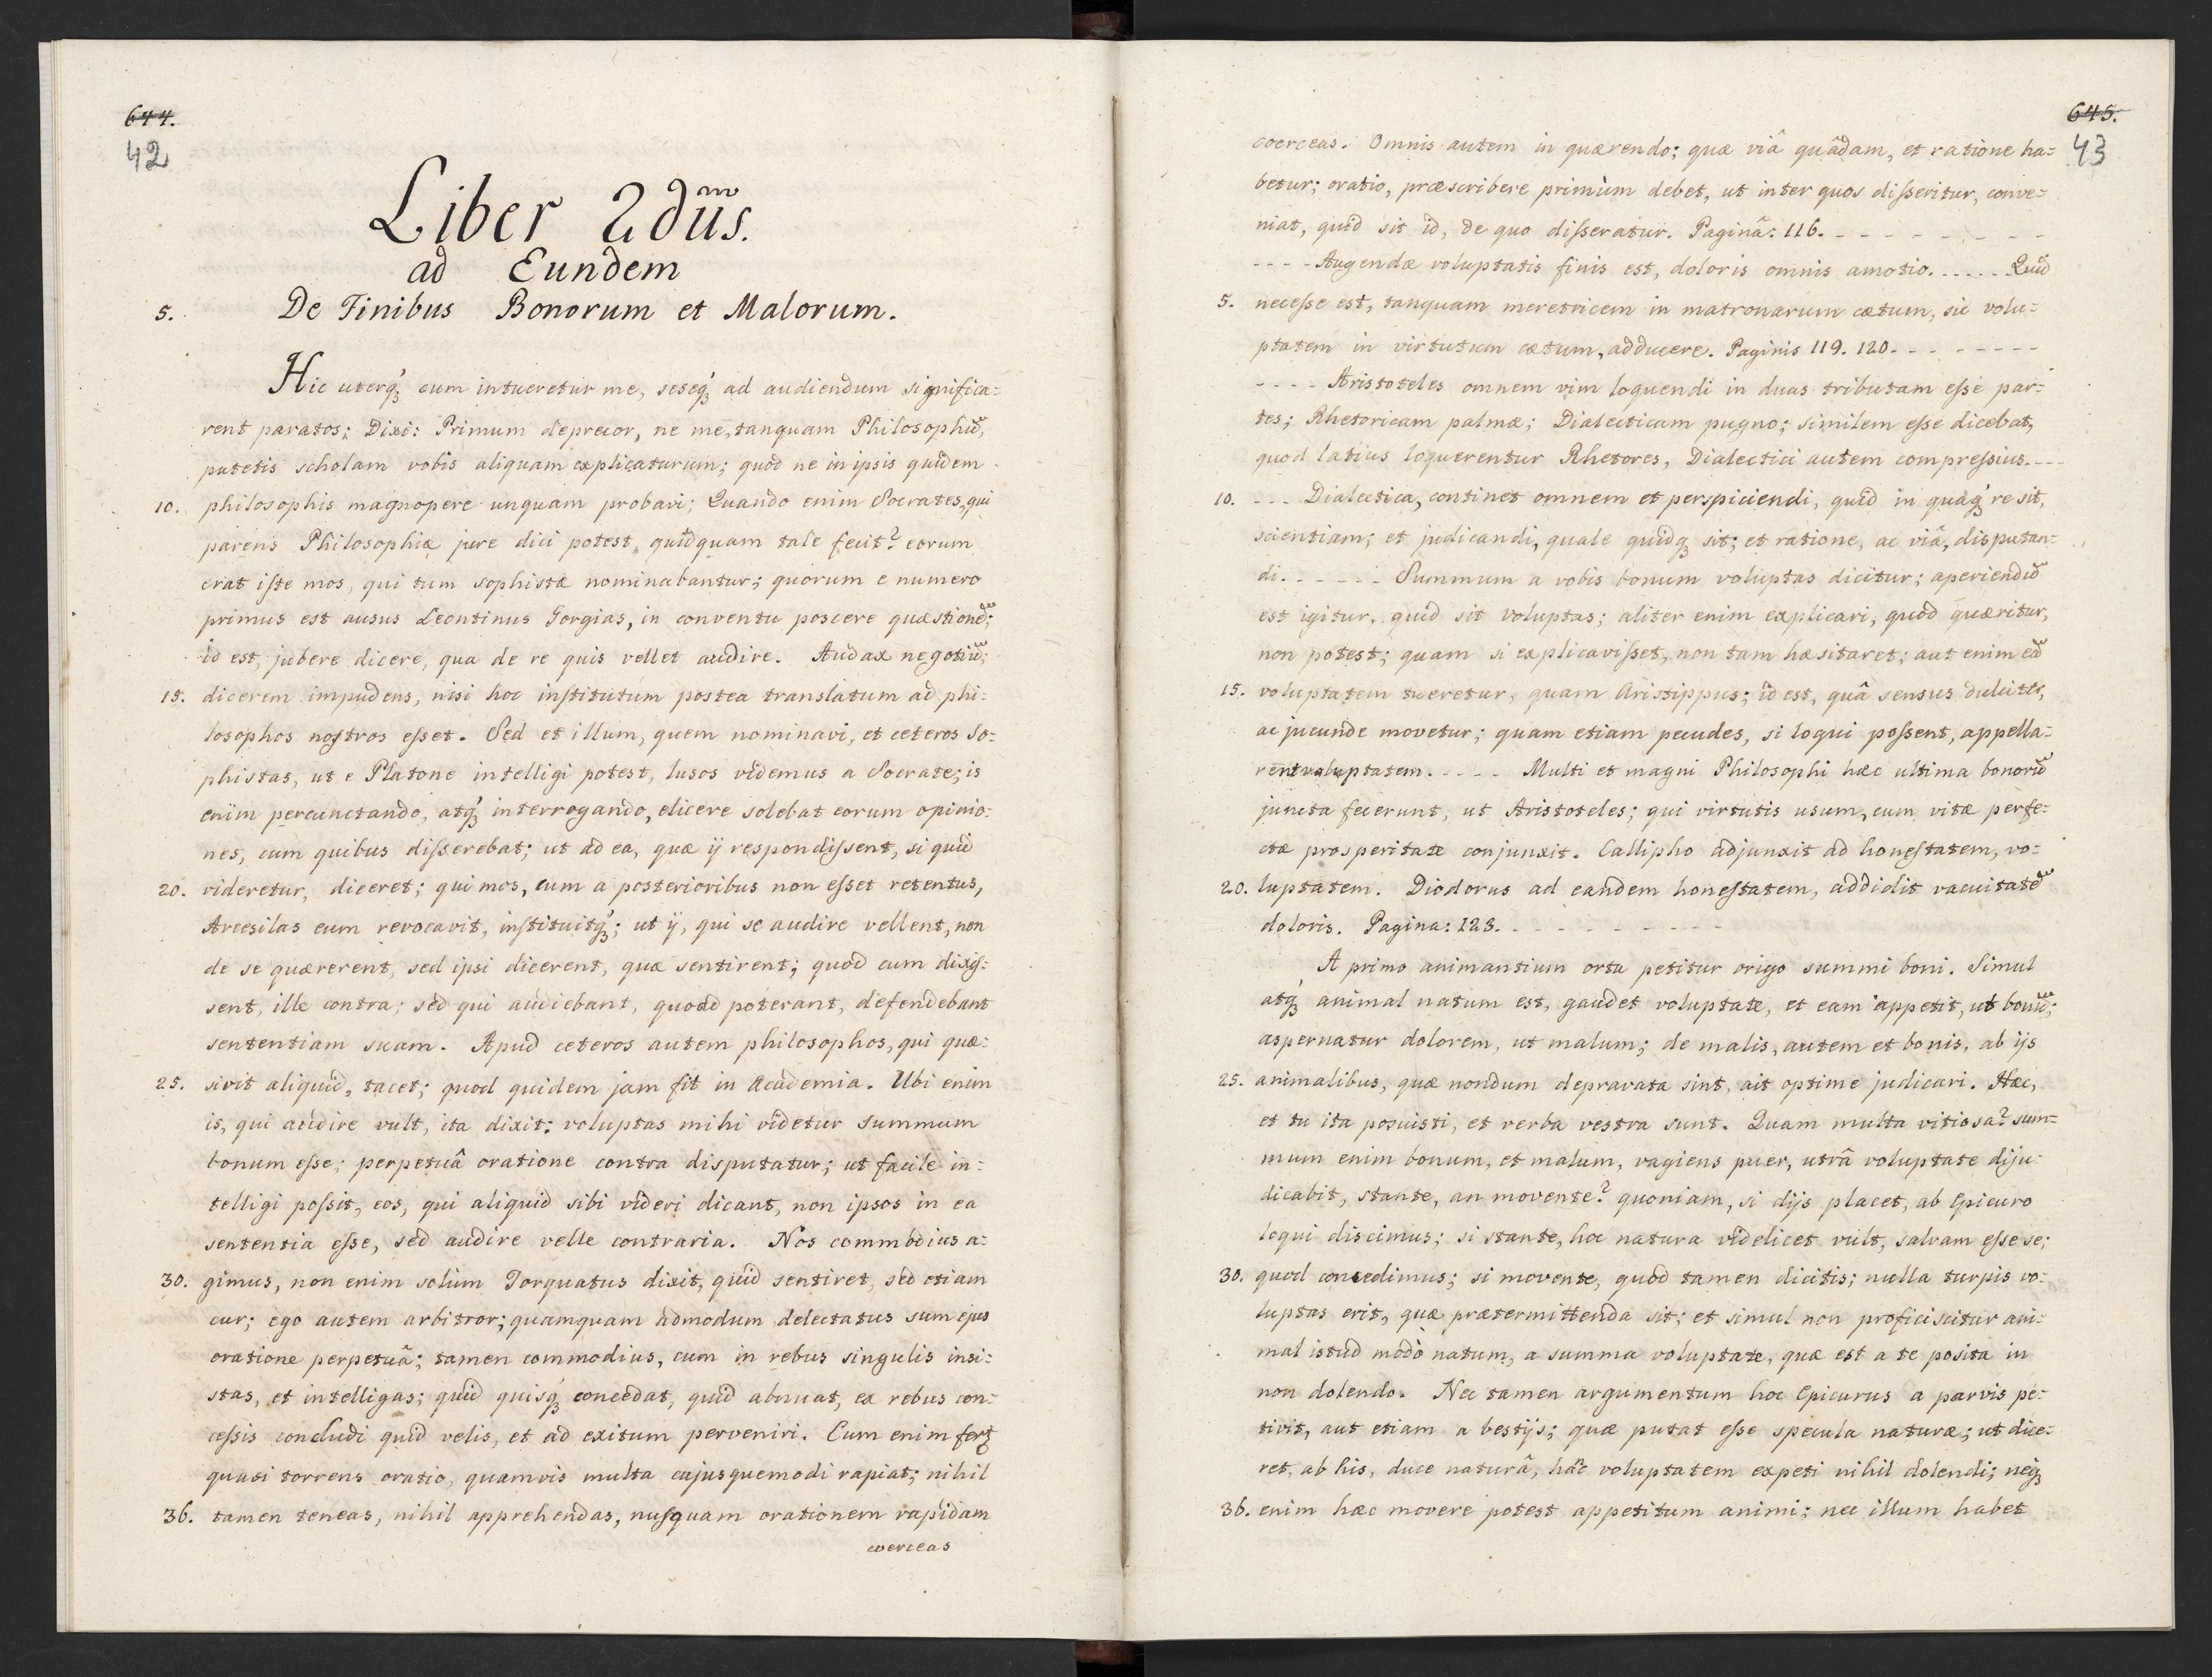 644.
42
Liber 2dūs.
ad Eundem
5. De Finibus Bonorum et Malorum.
Hic uterq́ʒ cum intueretur me, seseq́ʒ ad audiendum significa=
rent paratos; Dixi: Primum deprecor, ne me, tanquam Philosophū,
putetis scholam vobis aliquam explicaturum; quod ne in ipsis quidem
10. philosophis magnopere unquam probavi; Quando enim Socrates, qui
parens Philosophiæ jure dici potest, quidquam tale fecit? eorum
erat iſte mos, qui tum sophistæ nominabantur; quorum e numero
primus est ausus Leontinus Gorgias, in conventu poscere quæstionē;
id est, jubere dicere, qua de re quis vellet audire. Audax negotiū;
15. dicerem impudens, nisi hoc inſtitutum postea translatum ad phi=
losophos noſtros eſset. Sed et illum, quem nominavi, et ceteros So=
phistas, ut e Platone intelligi potest, lusos videmus a Socrate; is
enim percunctando, atq́ʒ interrogando, elicere solebat eorum opinio=
nes, cum quibus diſserebat; ut ad ea, quæ ij respondiſsent, si quid
20. videretur, diceret; qui mos, cum a posterioribus non eſset retentus,
Arcesilas eum revocavit, inſtituitq́ʒ; ut ij, qui se audire vellent, non
de se quærerent, sed ipsi dicerent, quæ sentirent; quod cum dixiſ=
sent, ille contra; sed qui audiebant, quoad poterant, defendebant
sententiam suam. Apud ceteros autem philosophos, qui quæ=
25. sivit aliquid, tacet; quod quidem jam fit in Academia. Ubi enim
is, qui audire vult, ita dixit: voluptas mihi videtur summum
bonum eſse; perpetuâ oratione contra disputatur; ut facile in=
telligi poſsit, eos, qui aliquid sibi videri dicant, non ipsos in ea
sententia eſse, sed audire velle contraria. Nos commodius a=
30. gimus, non enim solùm Torquatus dixit, quid sentiret, sed etiam
cur; ego autem arbitror; quamquam admodum delectatus sum ejus
oratione perpetuâ; tamen commodius, cum in rebus singulis insi=
stas, et intelligas; quid quisq́ʒ concedat, quid abnuat, ex rebus con=
ceſsis concludi quid velis, et ad exitum perveniri. Cum enim fert̃
quasi torrens oratio, quamvis multa cujusquemodi rapiat; nihil
36. tamen teneas, nihil apprehendas, nuſquam orationem rapidam
coerceas
645.
43
coerceas. Omnis autem in quærendo; quæ viâ quâdam, et ratione ha=
betur; oratio, præscribere primùm debet, ut inter quos diſseritur, conve=
niat, quid sit id, de quo diſseratur. Paginâ: 116. - - - - - - - -
- - - - Augendæ voluptatis finis est, doloris omnis amotio. . . . . . Quid
5. neceſse est, tanquam meretricem in matronarum cætum, sic volu=
ptatem in virtutum cætum, adducere. Paginis 119. 120. - - - - - - - -
- - - - Aristoteles omnem vim loquendi in duas tributam eſse par=
tes; Rhetoricam palmæ; Dialecticam pugno; similem eſse dicebat,
quod latius loquerentur Rhetores, Dialectici autem compreſsius. - - -
10. - - - Dialectica, continet omnem et perspiciendi, quid in quaq́ʒ re sit,
scientiam; et judicandi, quale quidqʒ sit; et ratione, ac viâ, disputan=
di. - - - - - Summum a vobis bonum voluptas dicitur; aperiendū
est igitur, quid sit voluptas; aliter enim explicari, quod quæritur,
non potest; quam si explicaviſset, non tam hæsitaret; aut enim eā
15. voluptatem tueretur, quam Aristippus; id est, quâ sensus dulciter,
ac jucunde movetur; quam etiam pecudes, si loqui poſsent, appella=
rent voluptatem. - - - - Multi et magni Philosophi hæc ultima bonorū
juncta fecerunt, ut Aristoteles; qui virtutis usum, cum vitæ perfe=
ctæ prosperitate conjunxit. Callipho adjunxit ad honeſtatem, vo=
20. luptatem. Diodorus ad eandem honeſtatem, addidit vacuitatē
doloris. Pagina: 123. - - - - - - - - -
A primo animantium ortu petitur origo summi boni. Simul
atq́ʒ animal natum est, gaudet voluptate, et eam appetit, ut bonū;
aspernatur dolorem, ut malum; de malis, autem et bonis, ab ijs
25. animalibus, quæ nondum depravata sint, ait optime judicari. Hæc,
et tu ita posuisti, et verba vestra sunt. Quam multa vitiosa? sum=
mum enim bonum, et malum, vagiens puer, utrâ voluptate diju=
dicabit, stante, an movente? quoniam, si dijs placet, ab Epicuro
loqui discimus; si stante, hoc natura videlicet vult, salvam eſse se;
30. quod concedimus; si movente, quod tamen dicitis; nulla turpis vo=
luptas erit, quæ prætermittenda sit; et simul non proficiscitur ani=
mal istud modò natum, a summa voluptate, quæ est a te posita in
non dolendo. Nec tamen argumentum hoc Epicurus a parvis pe=
tivit, aut etiam a bestijs; quæ putat eſse specula naturæ; ut dice=
ret, ab his, duce naturâ, hāc voluptatem expeti nihil dolendi; neqʒ
36. enim hæc movere potest appetitum animi; nec illum habet